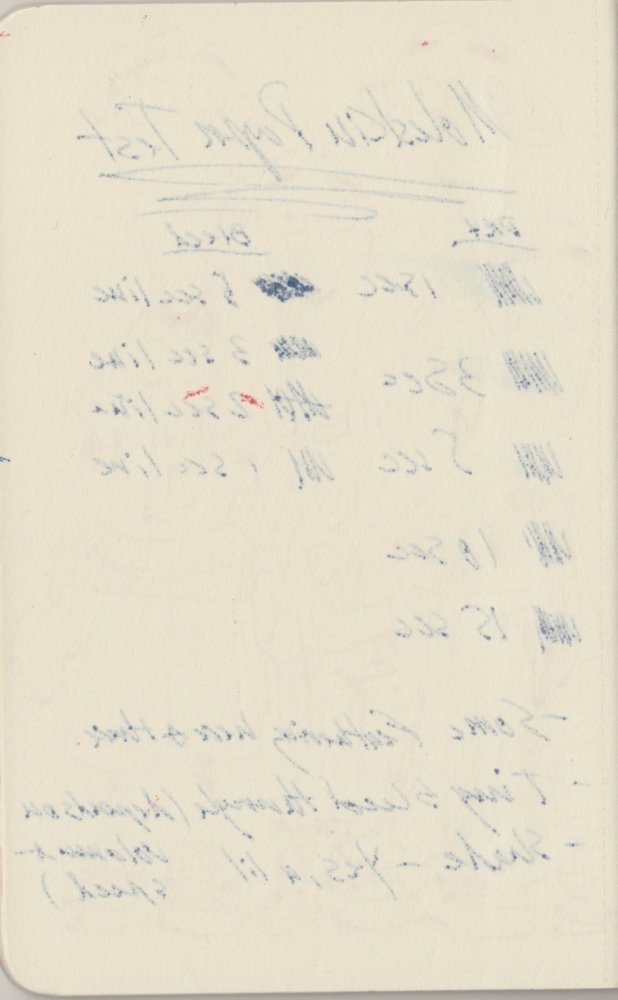 Moleskin Paper Test
Dry Bleed
1 sec 8 sec line
3 sec 3 sec line
2 sec line
5 sec 1 sec line
10 sec
15 sec
- Some feathering here & there.
- Tiny bleed through (depends on
volume &
speed)
- Shade - Yes, a lil